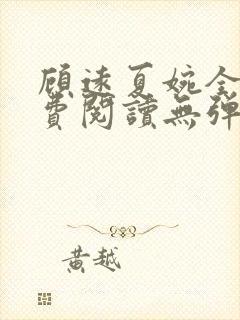 顾远夏婉全
费阅讀無弹
黄越